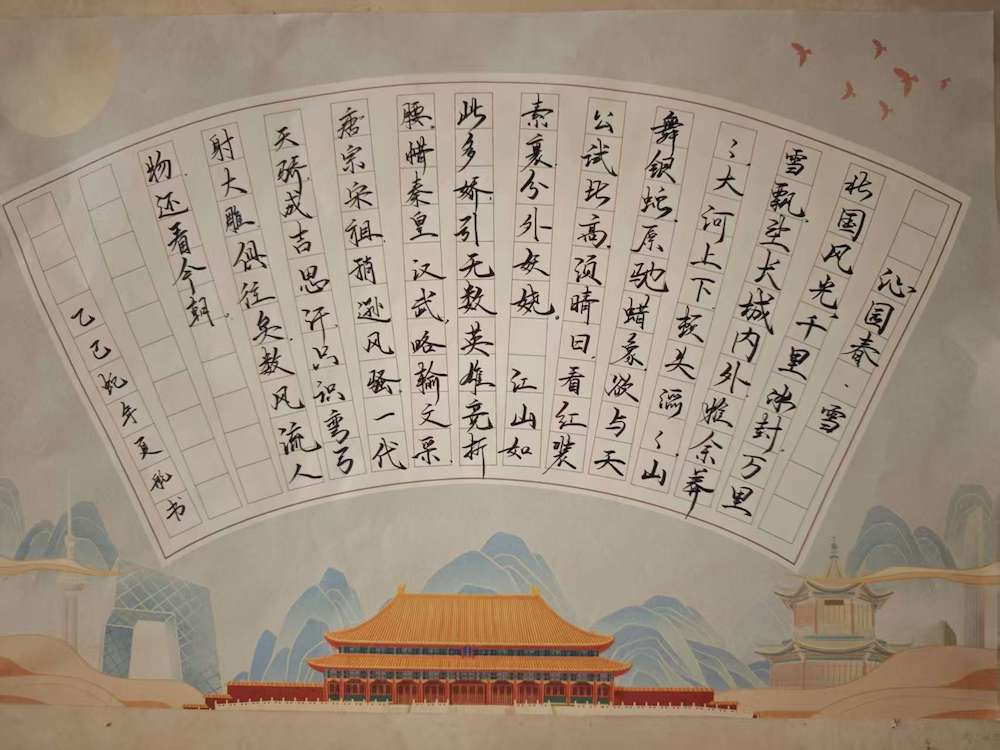 沁园春·雪
北国风光,千里冰封,万里
雪飘,望长城内外,惟余莽
〻,大河上下,顿失滔〻,山
舞银蛇,原驰蜡象,欲与天
公试比高,须晴日,看红装
素裹,分外妖娆。江山如
此多娇,引无数英雄竞折
腰,惜秦皇汉武,略输文采,
唐宗宋祖,稍逊风骚,一代
天骄,成吉思汗,只识弯弓
射大雕,俱往矣,数风流人
物,还看今朝。
乙巳蛇年夏书